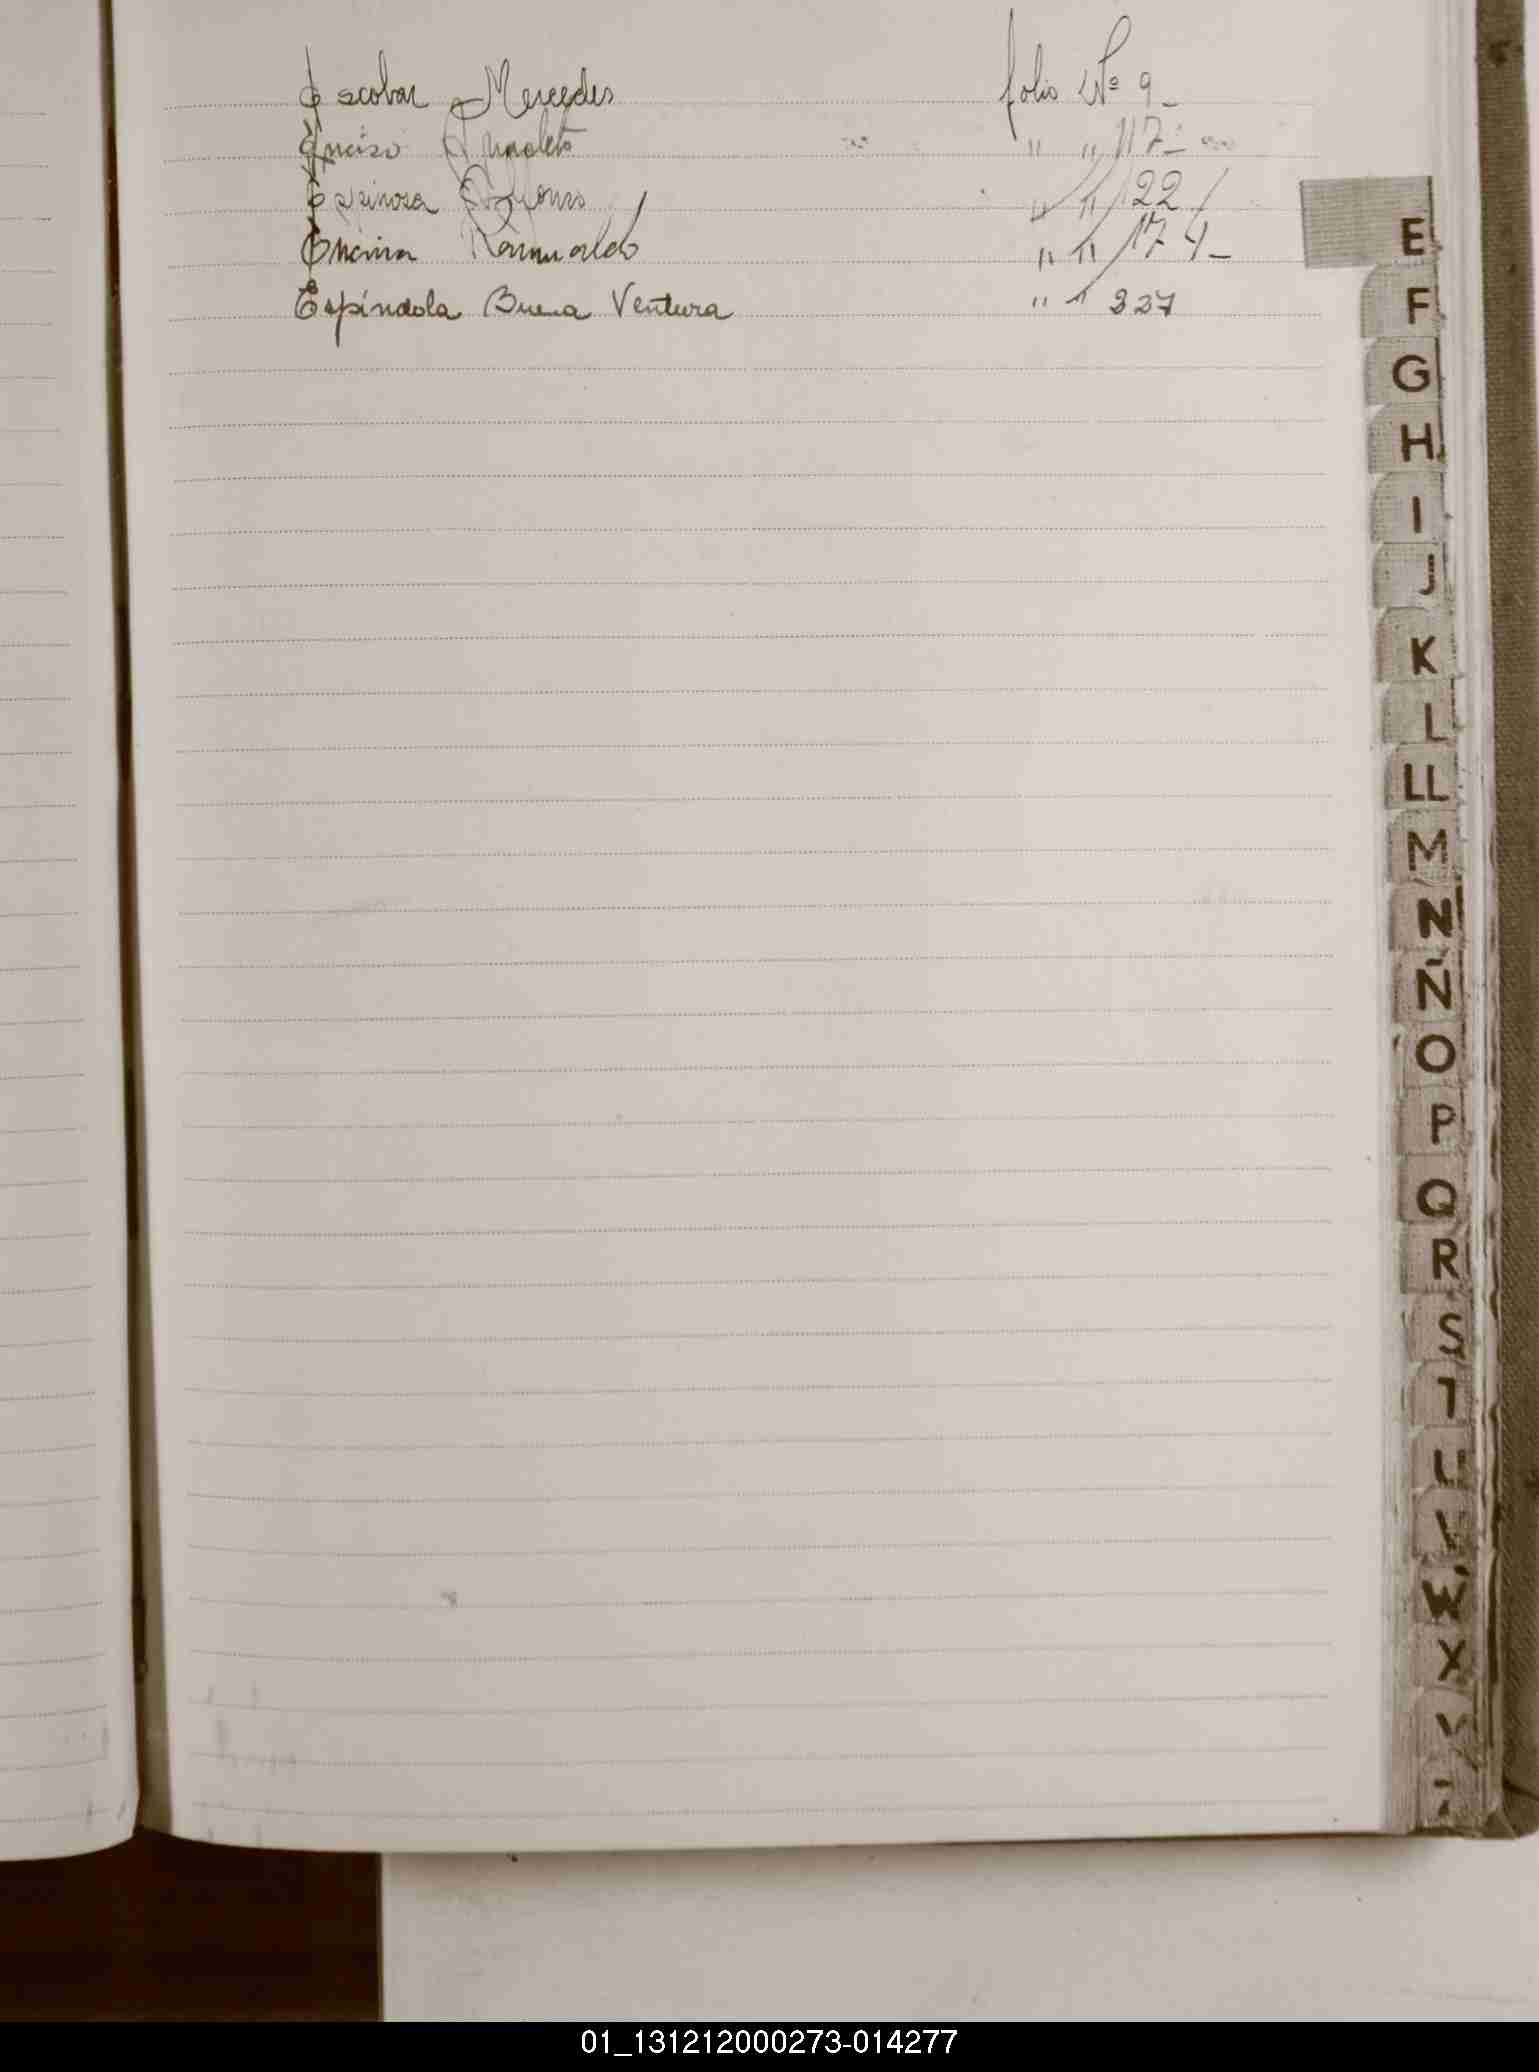 Escobar Mercedes folio Nº 9_
Enciso Anacleto " " 117_
Espinosa Alfonso " " 122
Encina Romualdo " " 174_
Espíndola Buena Ventura " " 327
E
F
G
H
I
J
K
L
LL
M
N
Ñ
O
P
Q
R
S
T
U
V
W
X
Y
01_131212000273-014277